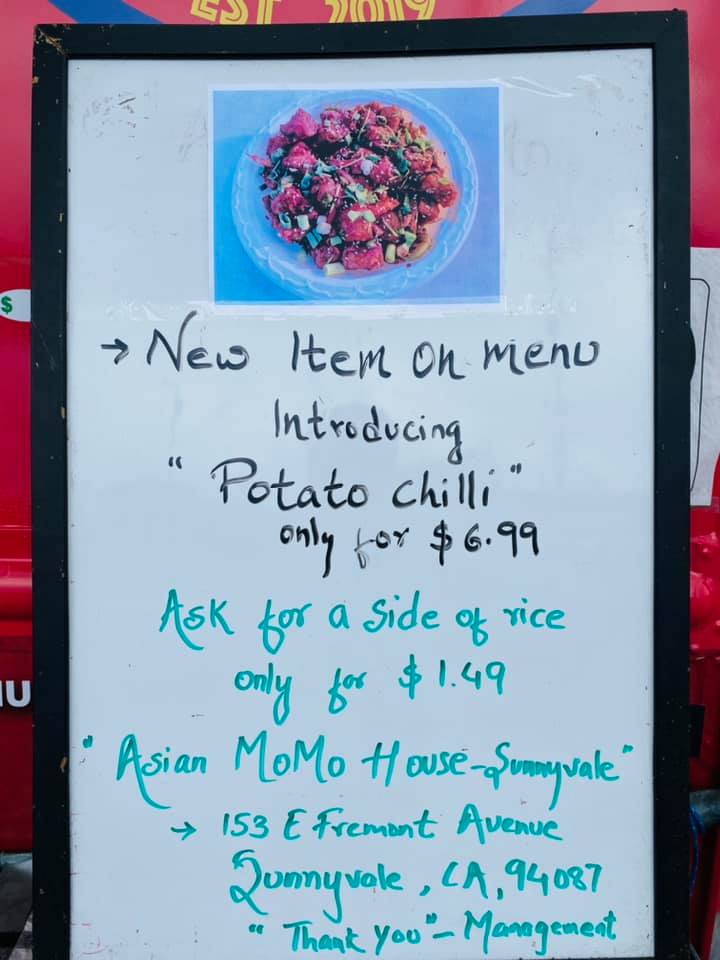 EST 2019
$
→ New Item on menu
Introducing
" Potato chilli "
only for $ 6.99
Ask for a side of rice
only for $ 1.49
" Asian MoMo House - Sunnyvale "
→ 153 E Fremont Avenue
Sunnyvale, CA, 94087
" Thank you " - Management